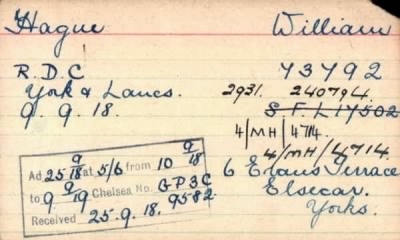 Hague William
R.D.C 73792
York & Lancs. 2931. 240794.
9. 9. 18. S.F.L 17502
4/MH/4714.
4/MH/4714.
Ad 25 9/18 at 5/6 from 10 9/18
to 9 9/19 Chelsea No. GP3C 9582
Received 25.9.18.
6 Evans Terrace
Elsecar.
Yorks.